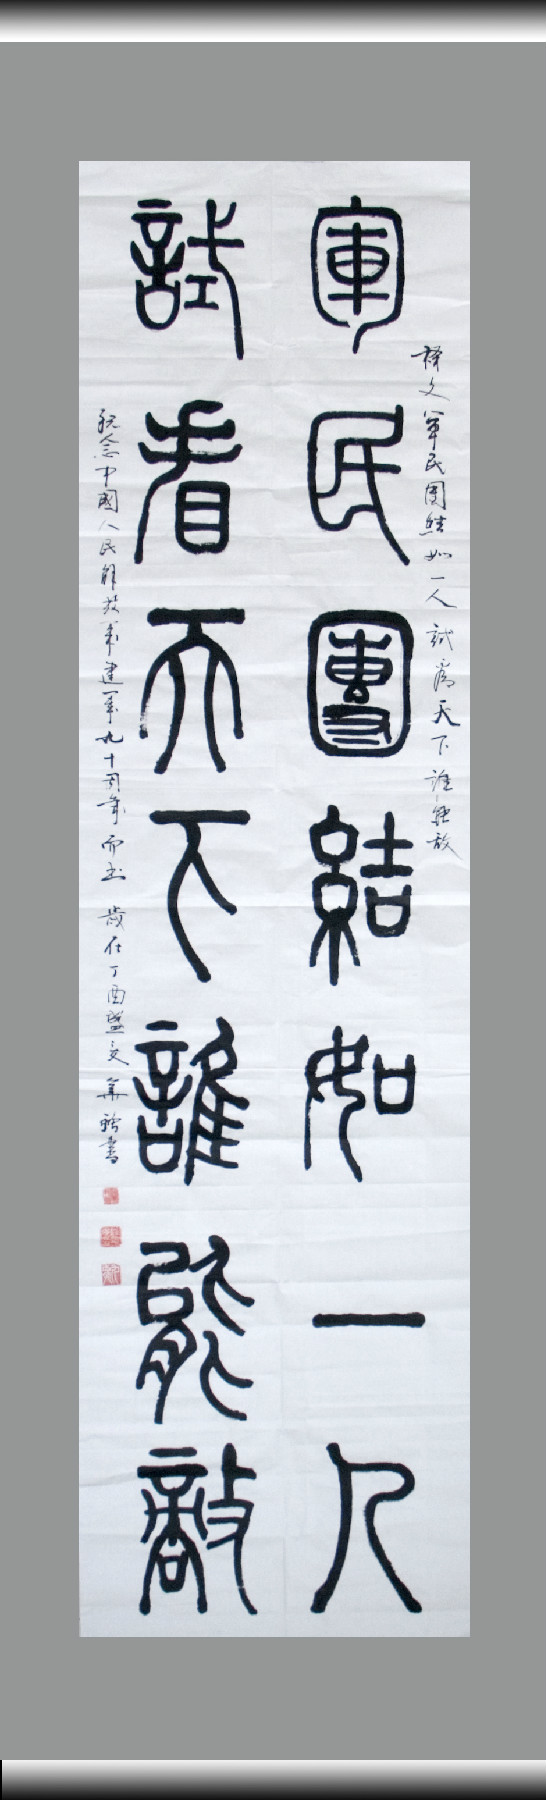 釋文 軍民團結如一人 試看天下誰能敵
軍民團結如一人
試看天下誰能敵
紀念中國人民解放軍建軍九十周年而书 歲在丁酉盛夏 書